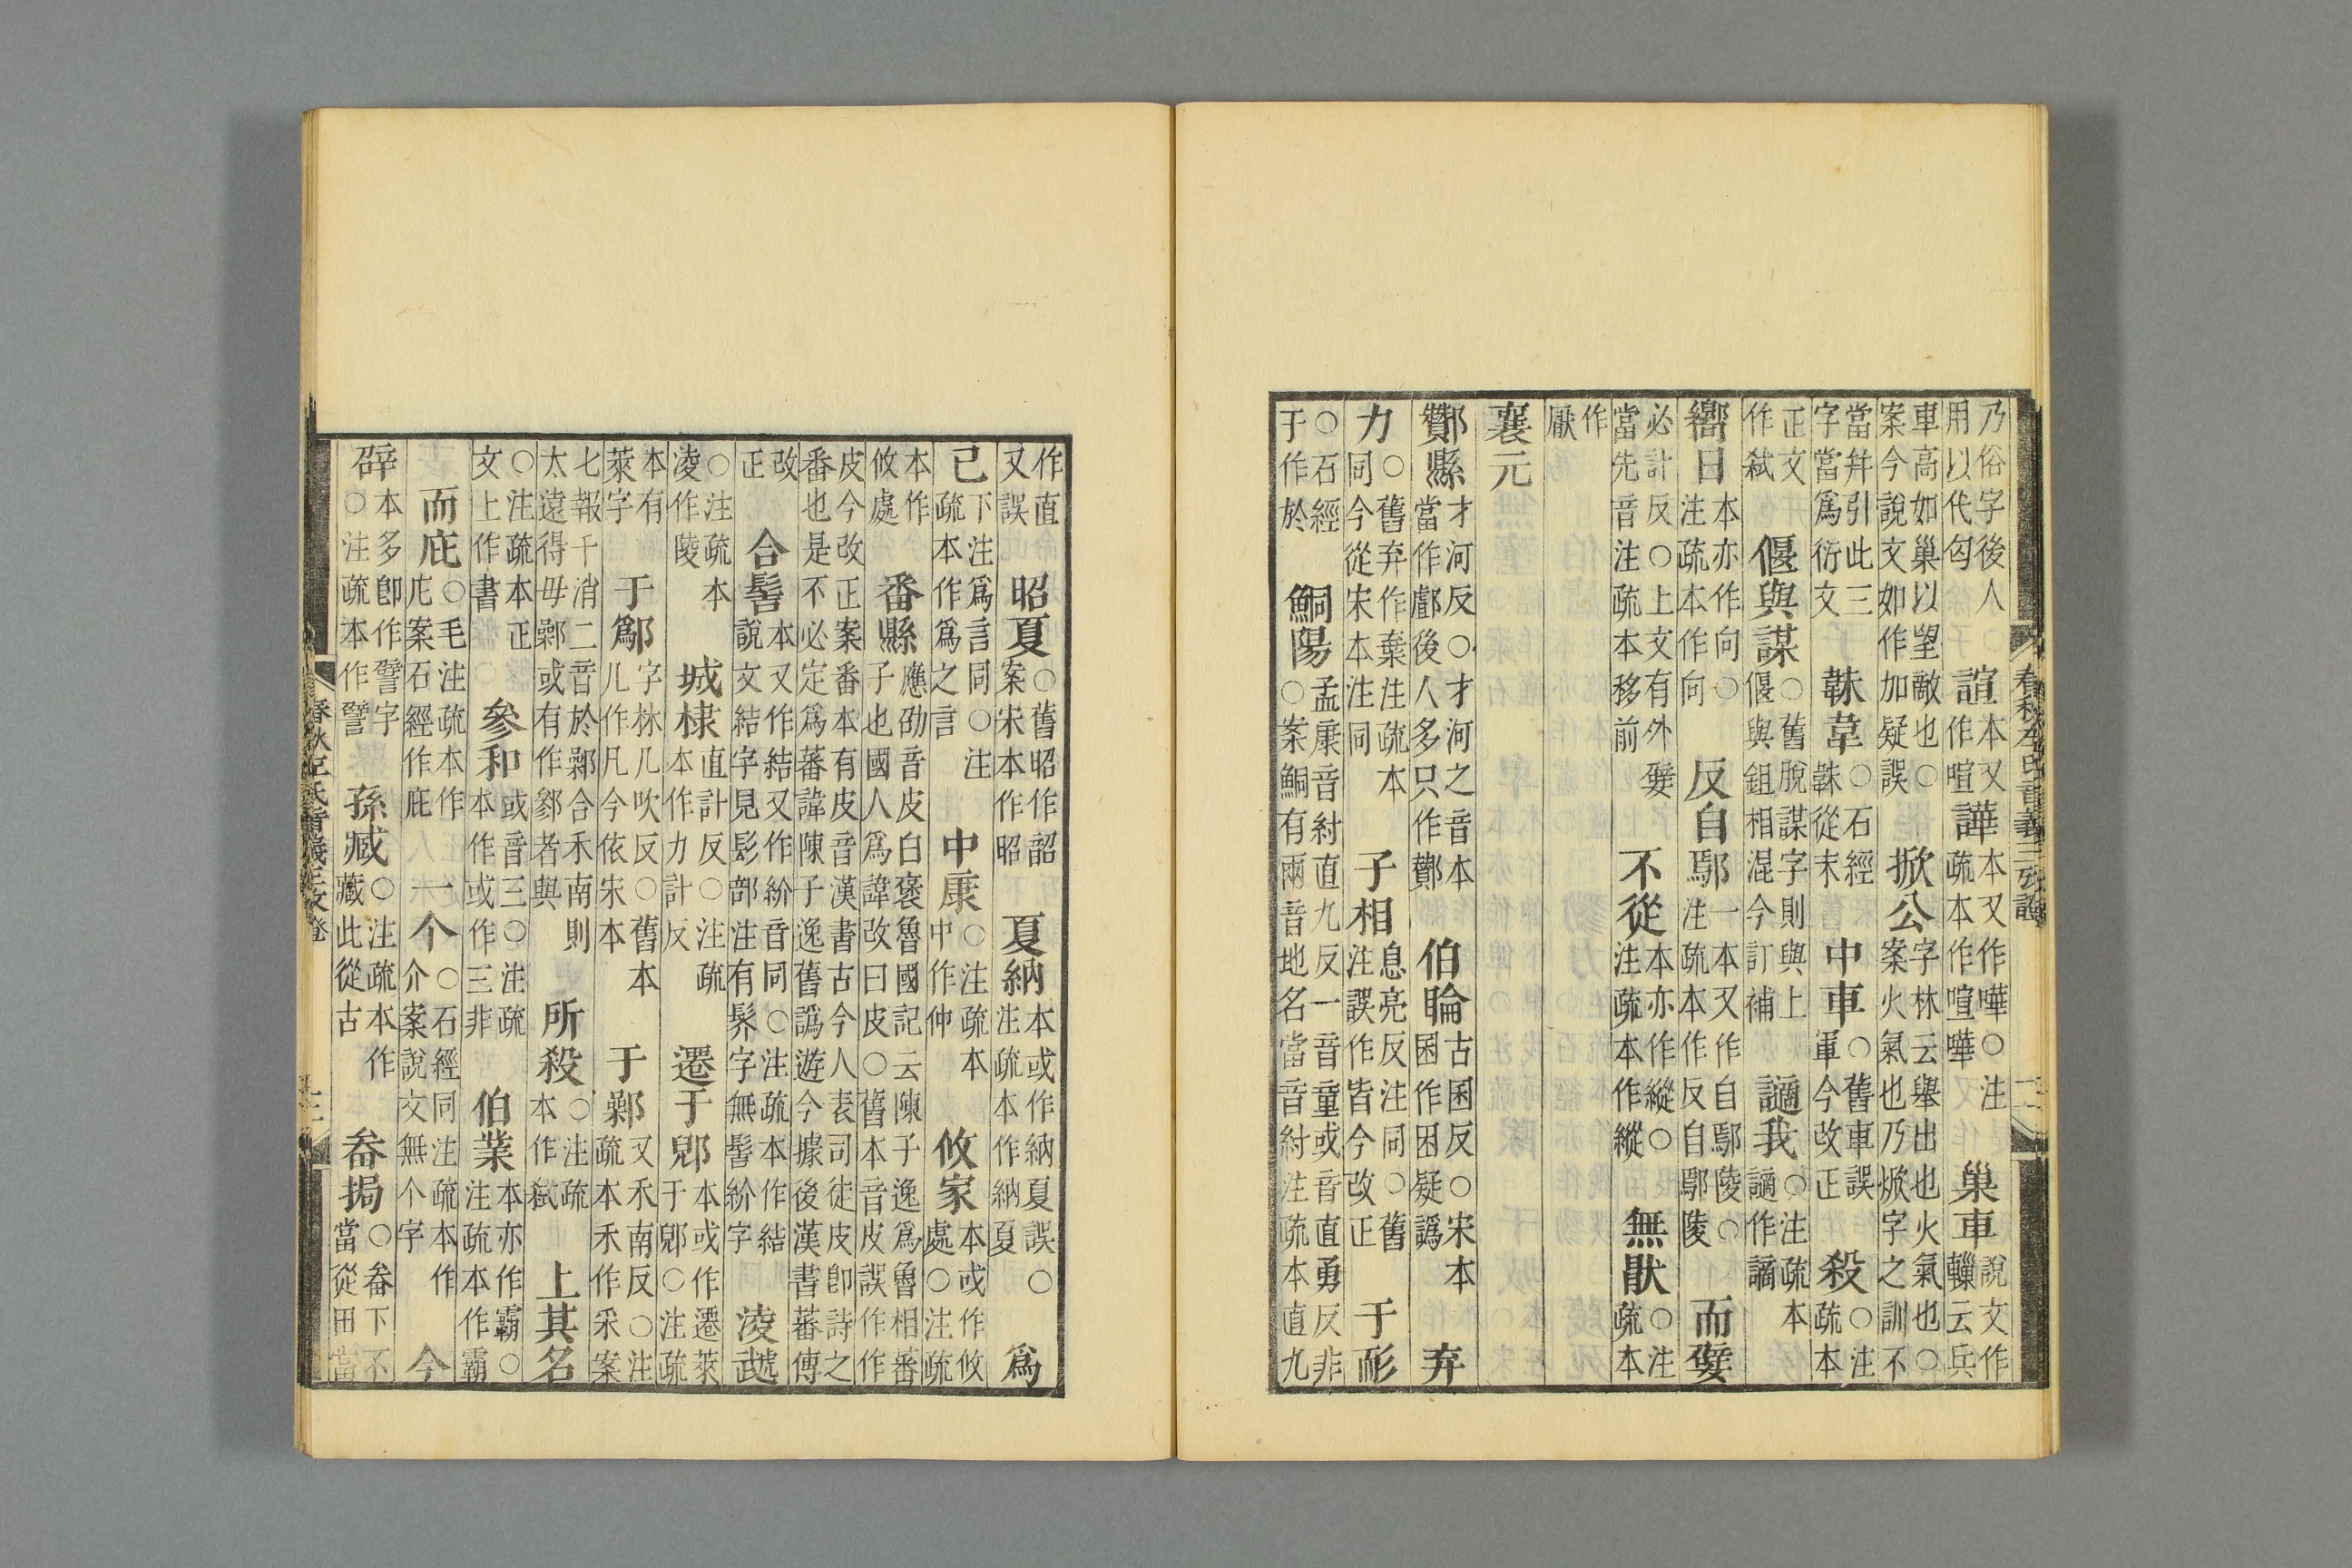 乃俗字後人○
用以代匃
諠
本又
作喧
譁
本又作嘩○注
疏本作喧嘩
巢車
說文作
轈云兵
車高如巢以望敵也○
案今說文如作加疑誤
掀公
字林云舉出也火氣也○
案火氣也乃焮字之訓不
當幷引此三
字當爲衍文
韎韋
○石經
韎從末
中車
○舊車誤
軍今改正
殺
○注
疏本
正文
作弒
偃與謀
○舊脫謀字則與上
偃與鉏相混今訂補
讁我
○注疏本
讁作謫
嚮日
本亦作向○
注疏本作向
反自鄢
一本又作自鄢陵○
注疏本作反自鄢陵
而嬖
必計反○上文有外嬖
當先音注疏本移前
不從
本亦作縱○
注疏本作縱
無猒
○注
疏本
作
厭
襄元
鄫縣
才河反○才河之音本
當作鄌後人多只作酇
伯睔
古困反○宋本
困作囷疑譌
弃
力
○舊弃作棄注疏本
同今從宋本注同
子相
息亮反注同○舊
注誤作皆今改正
于耏
○石經
于作於
鮦陽
孟康音紂直九反一音童或音直勇反非
○案鮦有兩音地名當音紂注疏本直九
春秋左氏音義三攷證
作直
又誤
昭夏
○舊昭作韶
案宋本作昭
夏納
本或作納夏誤○
注疏本作納夏
爲
己
下注爲言同○注
疏本作爲之言
中康
○注疏本
中作仲
攸家
本或作攸
處○注疏
本作
攸處
番縣
應劭音皮白褒魯國記云陳子逸爲魯相蕃
子也國人爲諱改曰皮○舊本音皮誤作作
皮今改正案番本有皮音漢書古今人表司徒皮卽詩之
番也是不必定爲蕃諱陳子逸舊譌遊今據後漢書蕃傳
改
正
合髻
本又作結又作紒音同○注疏本作結
說文結字見髟部注有髤字無髻紒字
淩虣
○注疏本
凌作陵
城棣
直計反○注疏
本作力計反
遷于郳
本或作遷萊
于郳○注疏
本有
萊字
于鄬
字林几吹反○舊本
几作凡今依宋本
于鄵
又禾南反○注
疏本禾作采案
七報千消二音於鄵合禾南則
太遠得毋鄵或有作鄝者與
所殺
○注疏
本作弒
上其名
○注疏本正
文上作書
參和
或音三○注疏
本作或作三非
伯業
本亦作霸○
注疏本作霸
而庇
○毛注疏本作
庀案石經作庇
一个
○石經同注疏本作
介案說文無个字
今
辟
本多卽作譬字
○注疏本作譬
孫臧
○注疏本作
藏此從古
畚挶
○畚下不
當從田當
春秋左氏音義三攷證